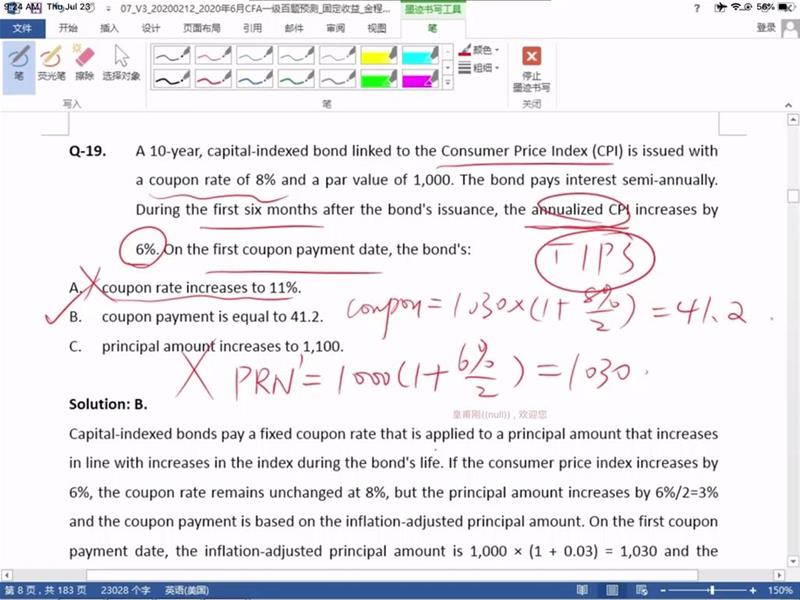 9:24 AM Thu Jul 23
07_V3_20200212_2020年6月CFA一级百题预测_固定收益_金程
墨迹书写工具
56%
文件 开始 插入 设计 页面布局 引用 邮件 审阅 视图 笔 登录
笔 荧光笔 擦除 选择对象
颜色
粗细
停止
墨迹书写
写入 笔 关闭
Q-19. A 10-year, capital-indexed bond linked to the Consumer Price Index (CPI) is issued with
a coupon rate of 8% and a par value of 1,000. The bond pays interest semi-annually.
During the first six months after the bond's issuance, the annualized CPI increases by
6%. On the first coupon payment date, the bond's:
TIPS
A. coupon rate increases to 11%.
coupon = 1030×(1+8%/2) = 41.2
B. coupon payment is equal to 41.2.
C. principal amount increases to 1,100.
PRN' = 1000(1+6%/2) = 1030.
皇甫刚((null))，欢迎您
Solution: B.
Capital-indexed bonds pay a fixed coupon rate that is applied to a principal amount that increases
in line with increases in the index during the bond's life. If the consumer price index increases by
6%, the coupon rate remains unchanged at 8%, but the principal amount increases by 6%/2=3%
and the coupon payment is based on the inflation-adjusted principal amount. On the first coupon
payment date, the inflation-adjusted principal amount is 1,000 × (1 + 0.03) = 1,030 and the
第 8 页，共 183 页 23028 个字 英语(美国) 150%